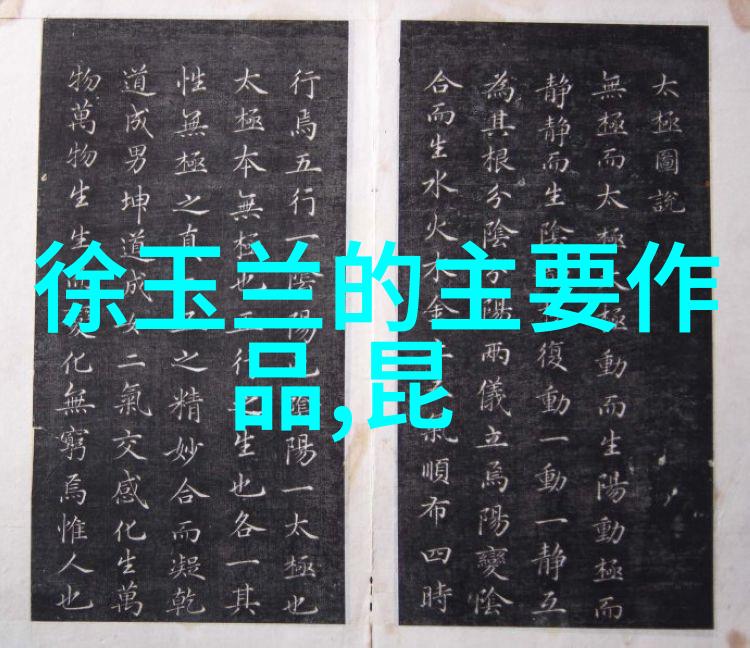 徐玉兰的主要作
品,昆
太極圖說
無極而太極太極動而生陽動極而
静静而生陰復動一動一静互
為其根分陰分陽兩儀立焉陽變陰
合而生水火木金氣順布四時
行焉五行一陰陽也陰陽一太極也
太極本無極也五行之生也各一其
性無極之真五之精妙合而凝乾
道成男坤道成女二氣交感化生萬
物萬物生生而變化無窮焉惟人也